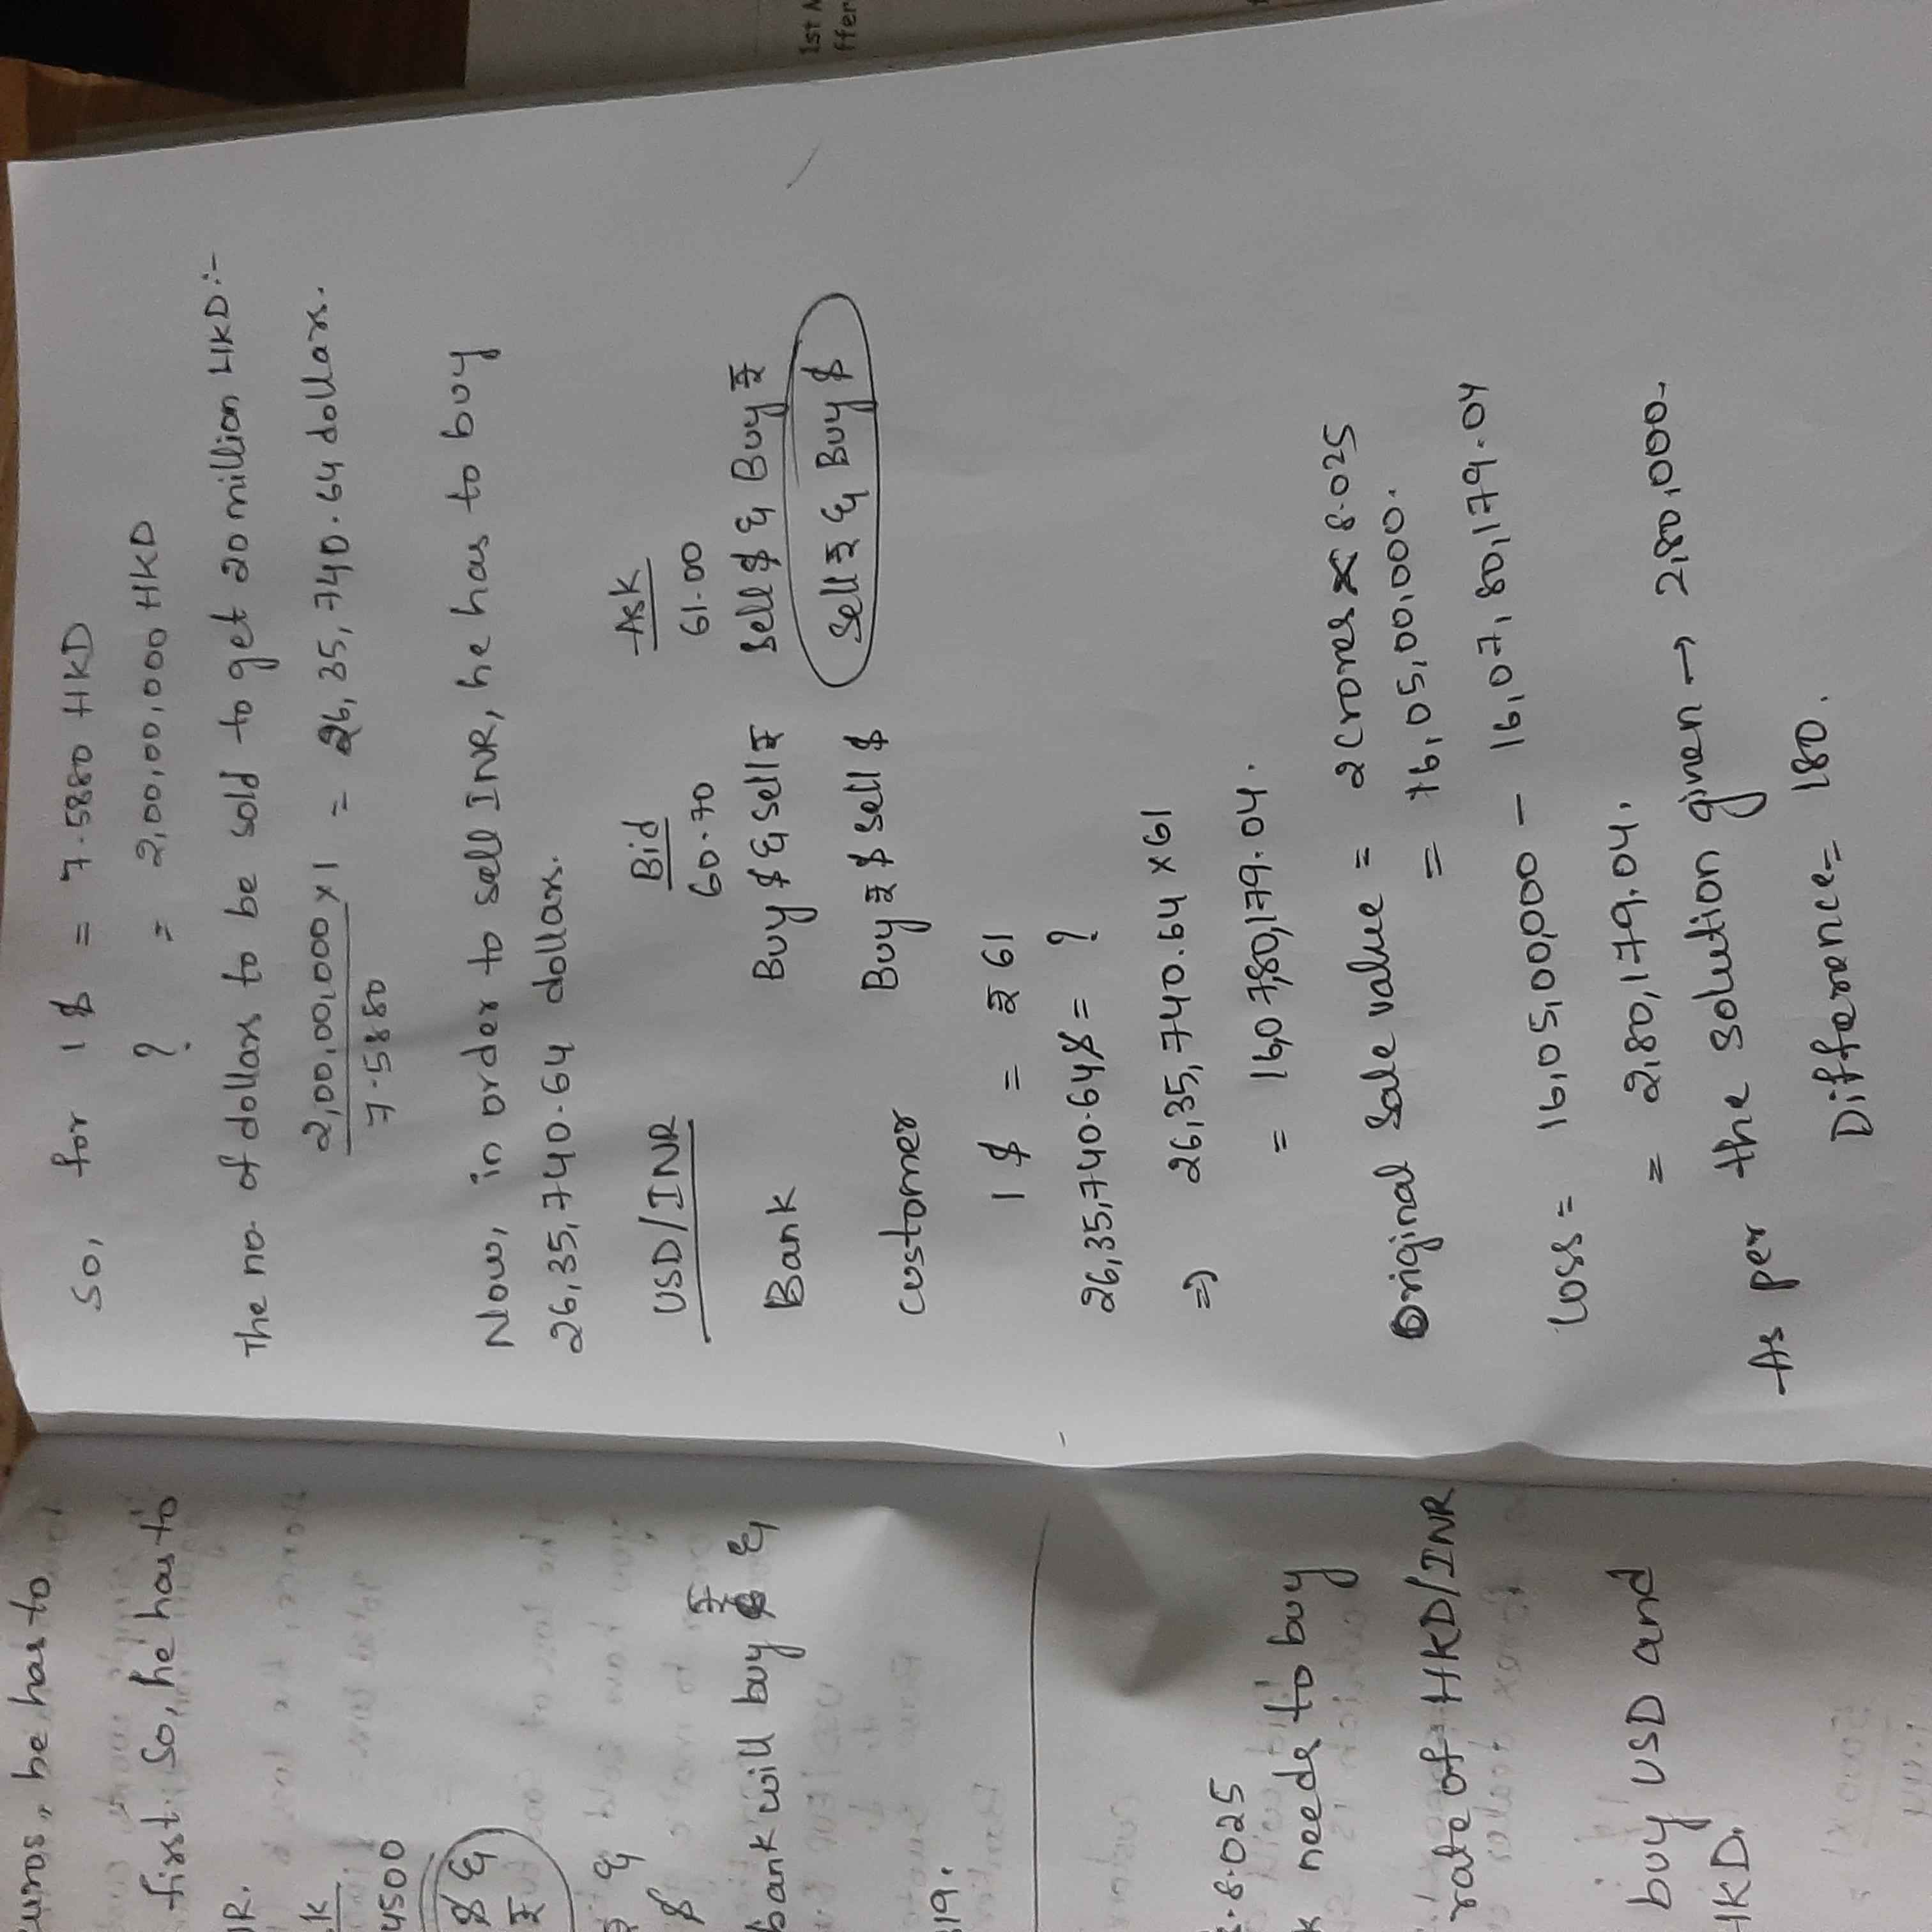 So, for 1 $ = 7.5880 HKD
? = 2,00,00,000 HKD
The no. of dollars to be sold to get 20 million HKD:-
2,00,00,000 x 1 = 26,35,740.64 dollars.
7.5880
Now, in order to sell INR, he has to buy
26,35,740.64 dollars.
USD/INR Bid Ask
60.70 61.00
Bank Buy $ & Sell ₹ Sell $ & Buy ₹
Customer Buy ₹ $ Sell $ Sell ₹ & Buy $
1 $ = ₹ 61
26,35,740.64$ = ?
=> 26,35,740.64 x 61
= 16,07,80,179.04.
Original Sale value = 2 crores x 8.025
= 16,05,00,000.
Loss = 16,05,00,000 - 16,07,80,179.04
= 2,80,179.04.
As per the solution given → 2,80,000.
Difference = 180.
euros, he has to
first. So, he has to
NR.
4500
$ &
₹
&
$
bank will buy ₹ &
19.
8.025
needs to buy
rate of HKD/INR
buy USD and
HKD.
1st
ffer